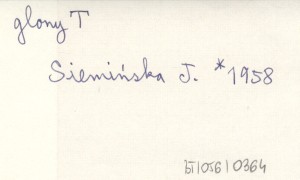 glony T
Siemińska J. *1958
BT/OTG/0364